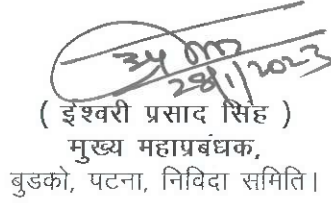 28/1/2023
( ईश्वरी प्रसाद सिंह )
मुख्य महाप्रबंधक,
बुडको, पटना, निविदा समिति।